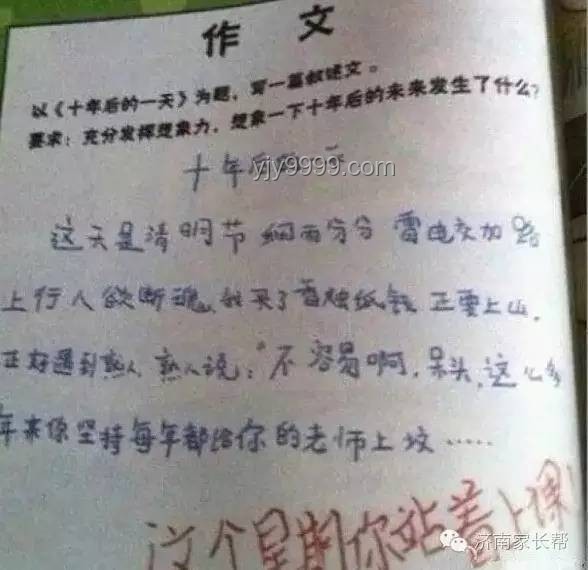 作 文
以《十年后的一天》为题，写一篇叙述文。
要求：充分发挥想象力，想象一下十年后的未来发生了什么？
十年后
yjy9999.com
这天是清明节 细雨分分 雷电交加 路
上行人欲断魂，我买了香烛纸钱 正要上山，
正好遇到熟人，熟人说："不容易啊，呆头，这么多
年来你坚持每年都给你的老师上坟……
这个星期你站着上课！
济南家长帮